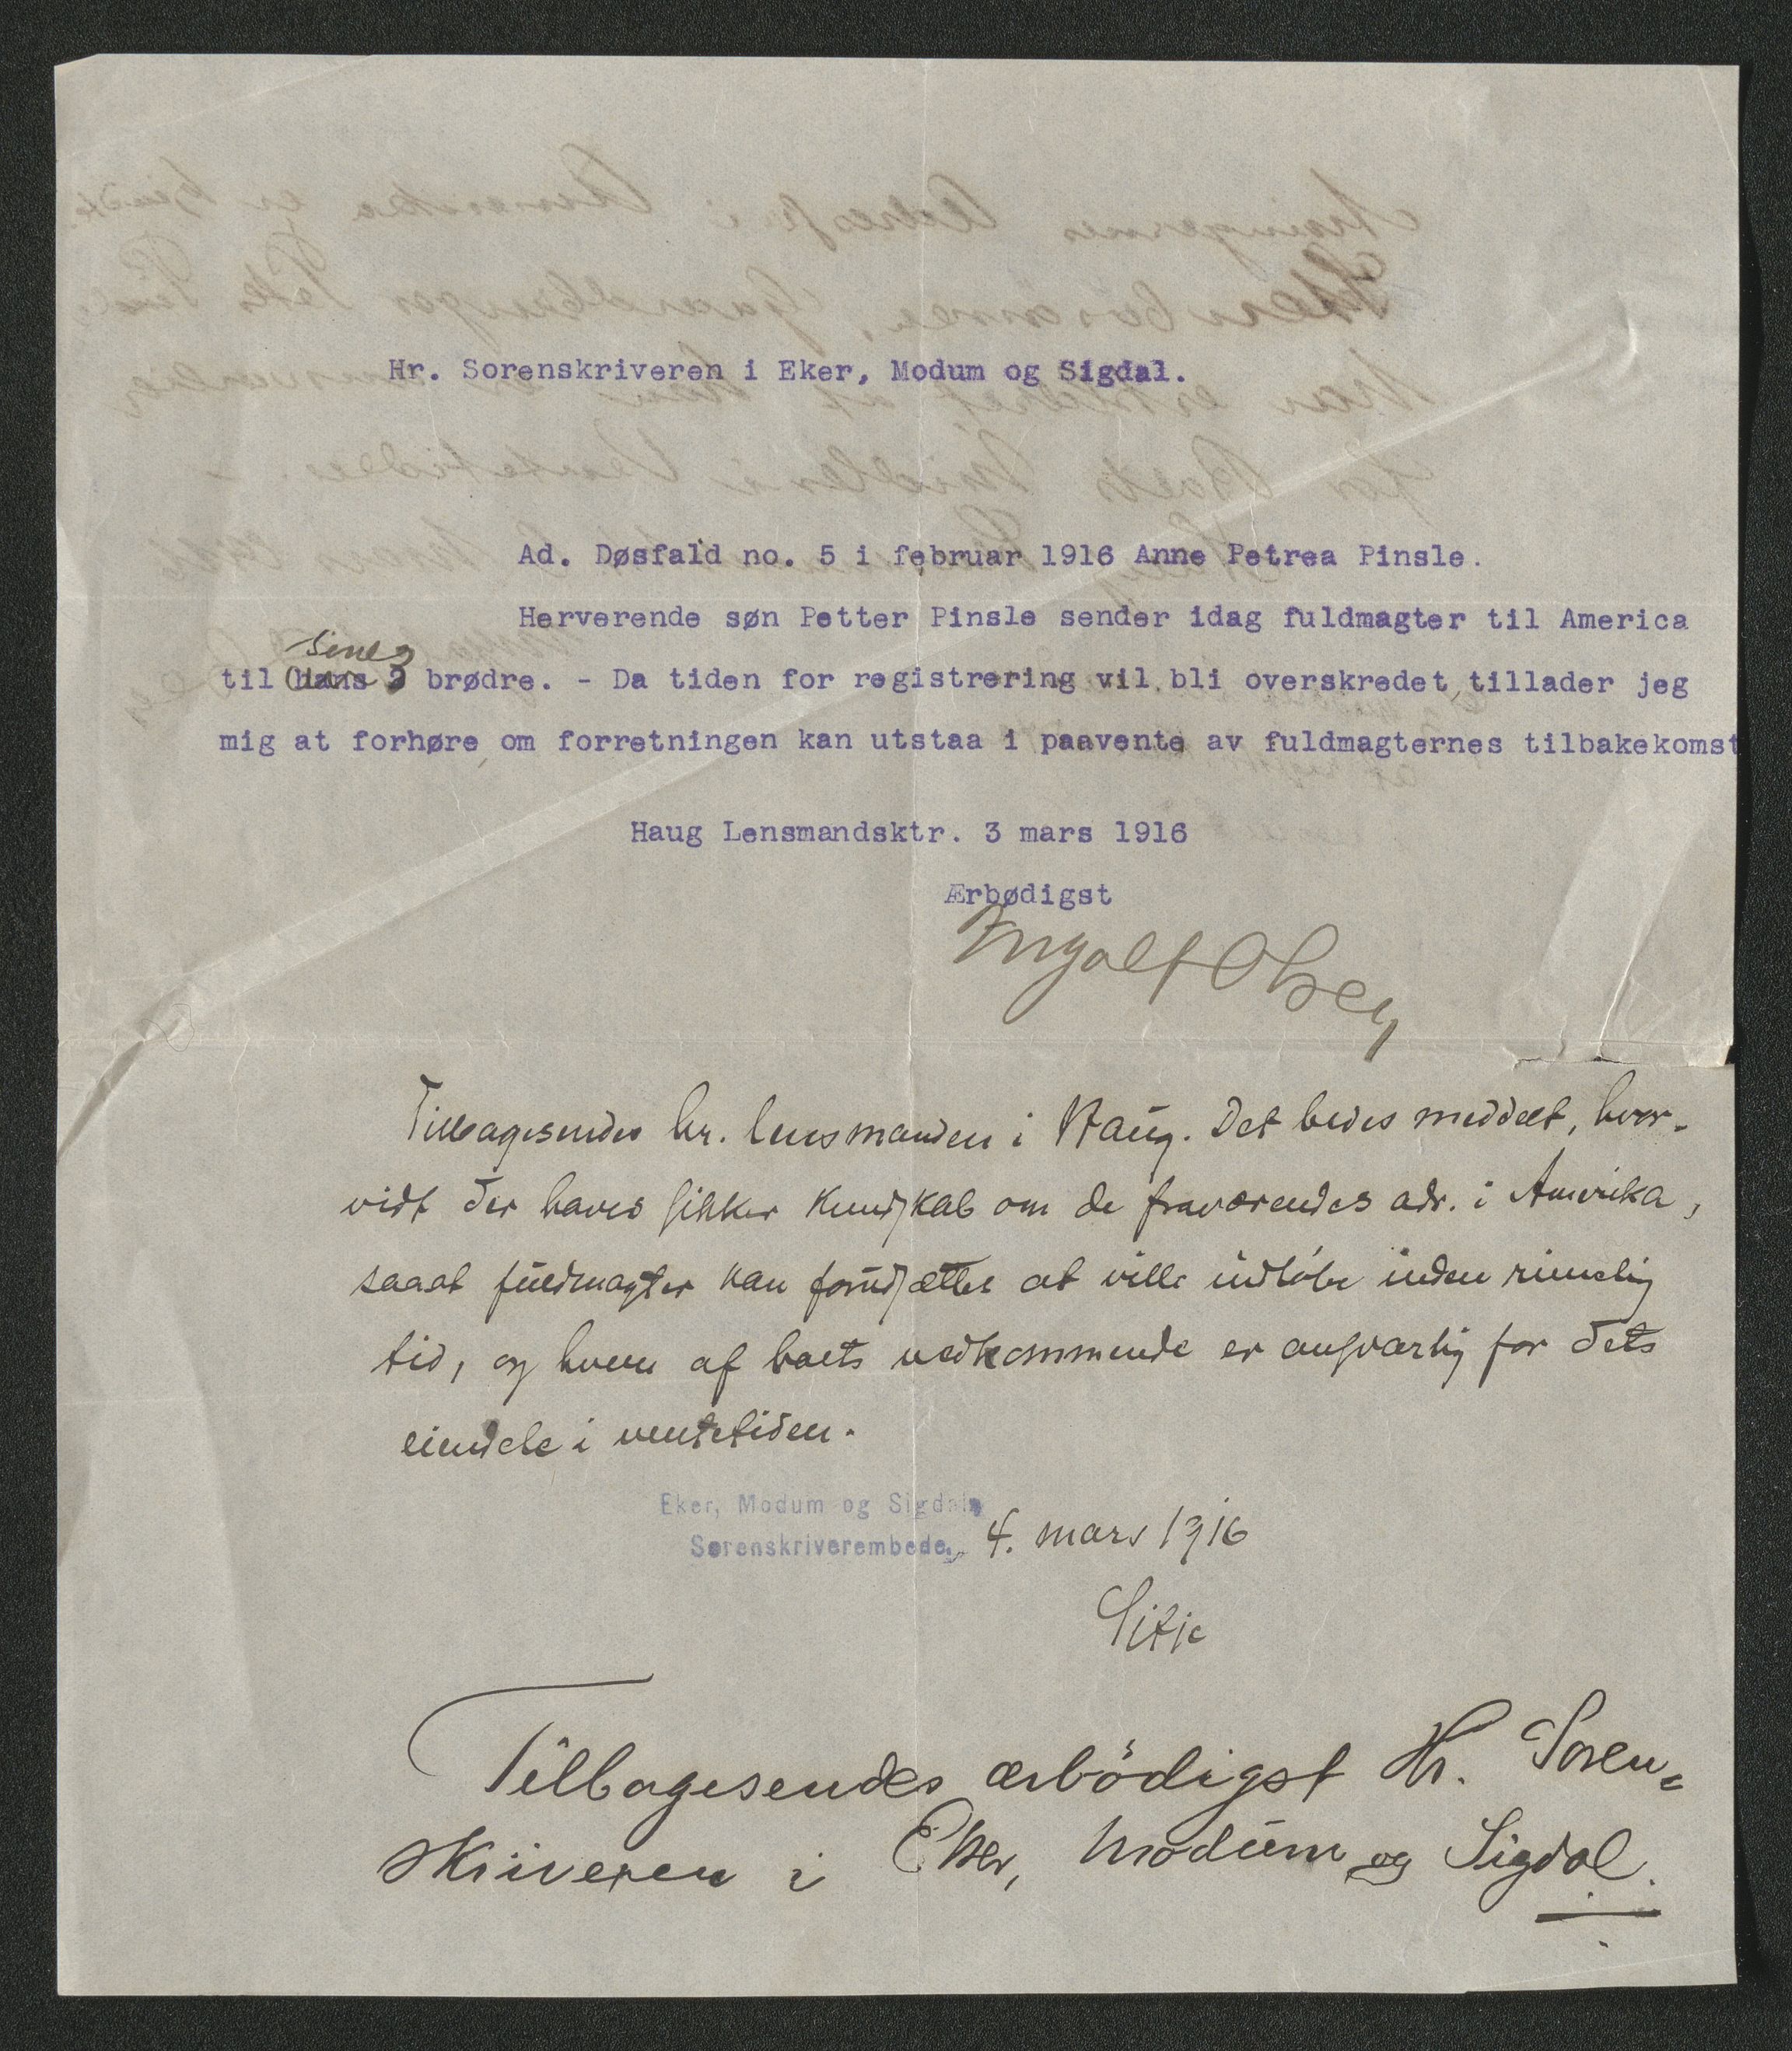 Hr. Sorenskriveren i Eker, Modum og Sigdal.
Ad. Døsfald no. 5 i februar 1916 Anne Petrea Pinsle.
Herverende søn Petter Pinsle sender idag fuldmagter til America
sine
til hans 2 brødre. - Da tiden for registrering vil bli overskredet, tillader jeg
mig at forhøre om forretningen kan utstaa i paavente av fuldmagternes tilbakekomst
Haug Lensmandsktr. 3 mars 1916
Ærbødigst
Ingolf Olsen
Tilbagesendes hr. lensmanden i Haug. Det bedes meddelt, hvor-
vidt der haves sikker kundskab om de fraværendes adr. i Amerika,
saaat fuldmagter kan forudsættes at ville indløbe inden rimelig
tid, og hvem af boets vedkommende er ansvarlig for dets
eiendele i ventetiden.
Eker, Modum og Sigdals
Sorenskriverembede, 4. mars 1916
Tilbagesendes ærbødigst Hr. Soren-
skriveren i Eker, Modum og Sigdal.